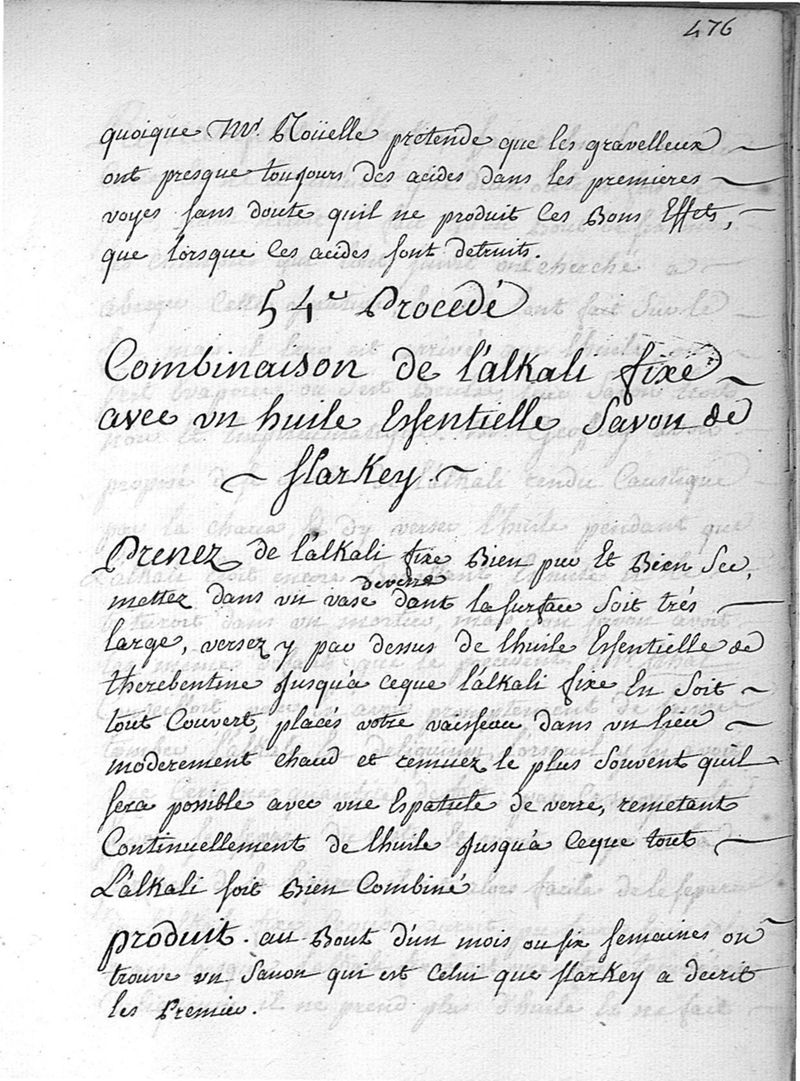 476
quoique Mr. Roüelle prétende que les gravelleux
ont presque toujours des acides dans les premieres
voyes sans doute quil ne produit ces Bons Effets,
que lorsque ces acides sont detruits.
54e Procedé
Combinaison de l'alkali fixe
avec un huile Essentielle Savon de
Starkey.
Prenez de l'alkali fixe Bien pur Et Bien Sec,
de verre
mettez dans un vase dont la surface soit trés
large, versez y par dessus de l'huile Essentielle de
therebentine jusqu'à ceque lalkali fixe En soit
tout Couvert, placés votre vaisseau dans un lieu
moderement chaud et remuez le plus souvent quil
sera possible avec une Espatule de verre, remetant
Continuellement de l'huile jusqu'à ceque tout
L'alkali soit Bien Combiné
produit. au Bout d'un mois ou six semaines on
trouve un Savon qui est celui que Starkey a decrit
les Premier.